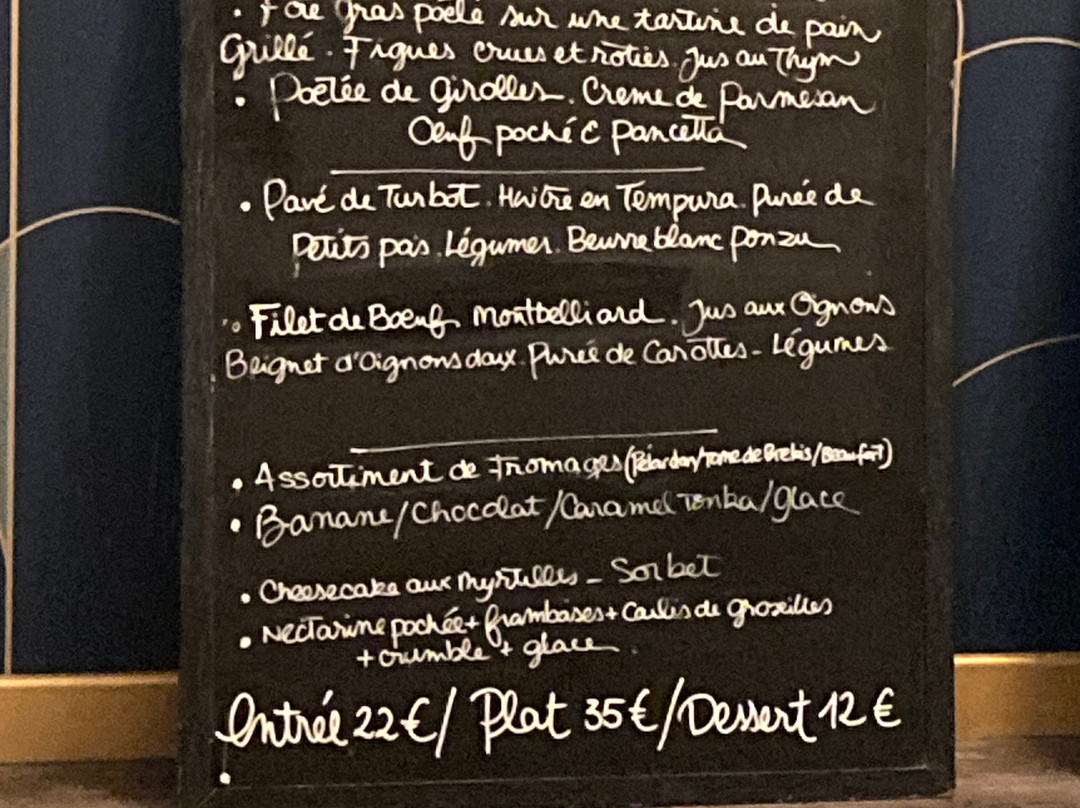 • Foie gras poêlé sur une tartine de pain
Grillé. Figues crues et roties. Jus au Thym
• Poêlée de Girolles. Creme de Parmesan
Oeuf poché & Pancetta
• Pavé de Turbot. Huître en Tempura. Purée de
Petits pois. Légumes. Beurre blanc Ponzu
• Filet de Bœuf Montbelliard. Jus aux Oignons
Beignet d'Oignons doux. Purée de Carottes - Légumes
• Assortiment de Fromages (Pélardon/Tome de Brebis/Beaufort)
• Banane/Chocolat/Caramel Tonka/glace
• Cheesecake aux Myrtilles - Sorbet
• Nectarine pochée + framboises + Coulis de groseilles
+ crumble + glace.
Entrée 22€/ Plat 35€/Dessert 12€